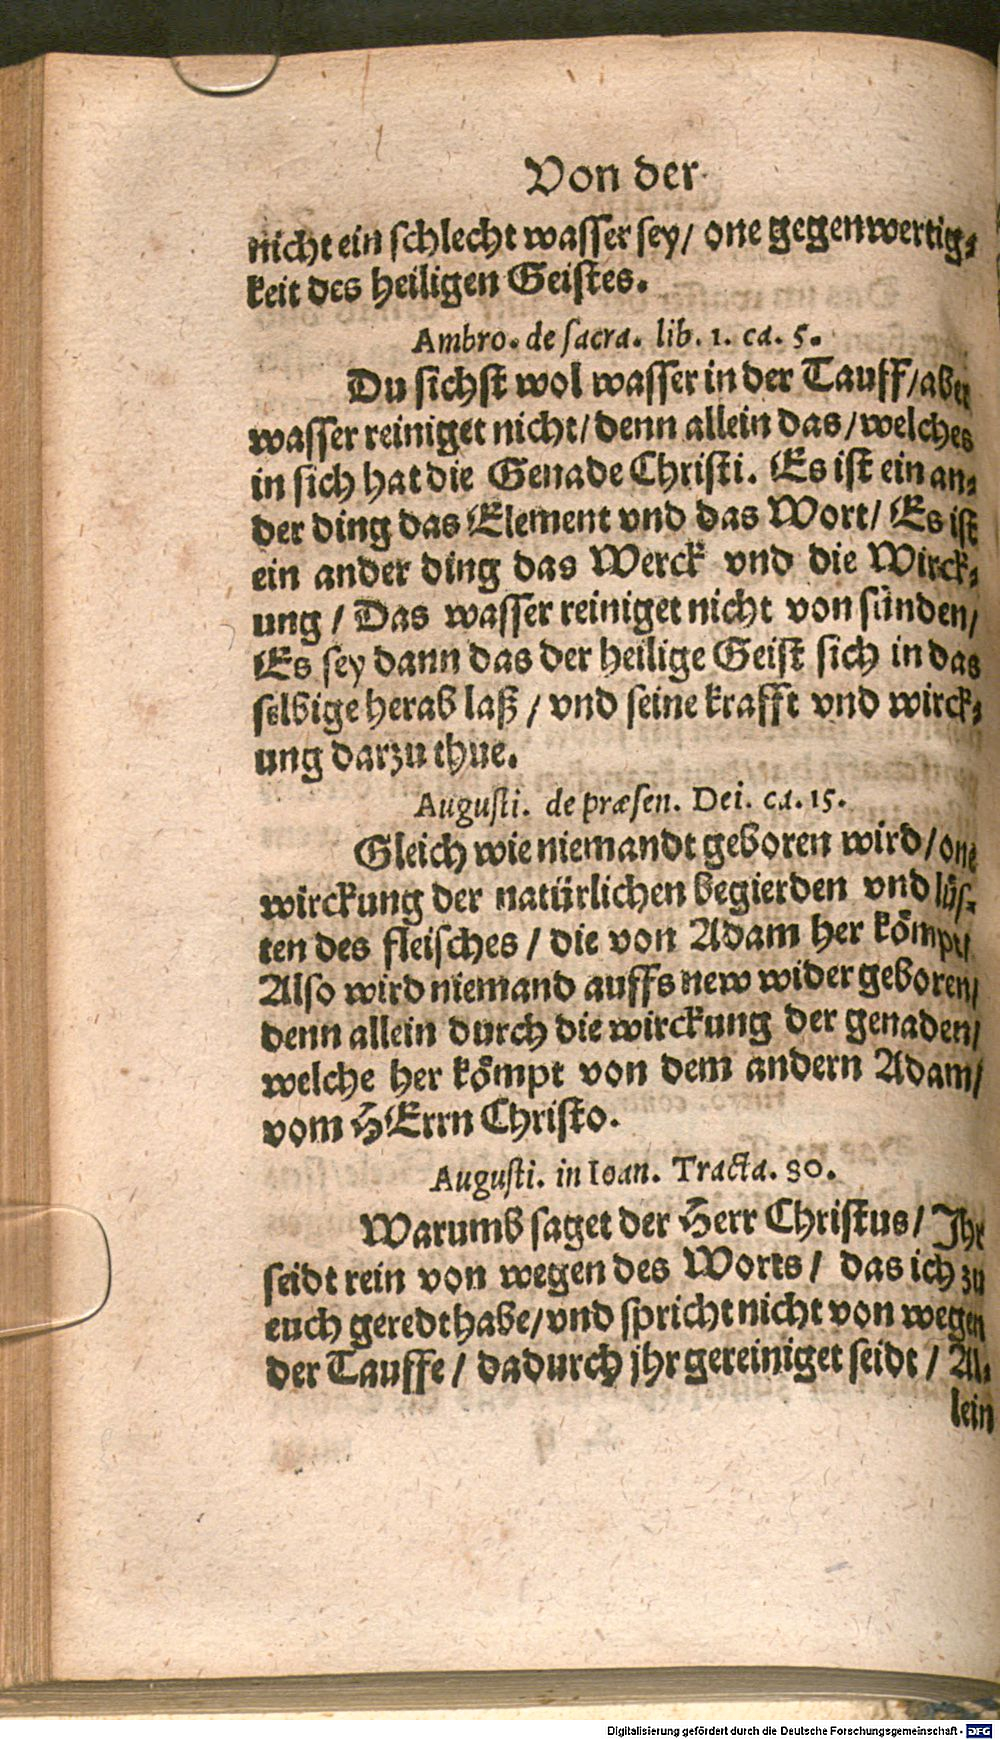 Von der
nicht ein schlecht wasser sey/ one gegenwertig⸗
keit des heiligen Geistes.
Ambro. de sacra. lib. 1. ca. 5.
Du sichst wol wasser in der Tauff/ aber
wasser reiniget nicht/ denn allein das/ welches
in sich hat die Genade Christi. Es ist ein an⸗
der ding das Element vnd das Wort/ Es ist
ein ander ding das Werck vnd die Wirck⸗
ung/ Das wasser reiniget nicht von sünden/
Es sey dann das der heilige Geist sich in das
selbige herab laß/ vnd seine krafft vnd wirck⸗
ung darzu thue.
Augusti. de præsen. Dei. ca. 15.
Gleich wie niemandt geboren wird/ one
wirckung der natürlichen begierden vnd lüs⸗
ten des fleisches/ die von Adam her kömpt/
Also wird niemand auffs new wider geboren/
denn allein durch die wirckung der genaden/
welche her kömpt von dem andern Adam/
vom HErrn Christo.
Augusti. in Ioan. Tracta. 80.
Warumb saget der Herr Christus/ Jhr
seidt rein von wegen des Worts/ das ich zu
euch geredt habe/ vnd spricht nicht von wegen
der Tauffe/ dadurch jhr gereiniget seidt/ Al⸗
lein
Digitalisierung gefördert durch die Deutsche Forschungsgemeinschaft - DFG